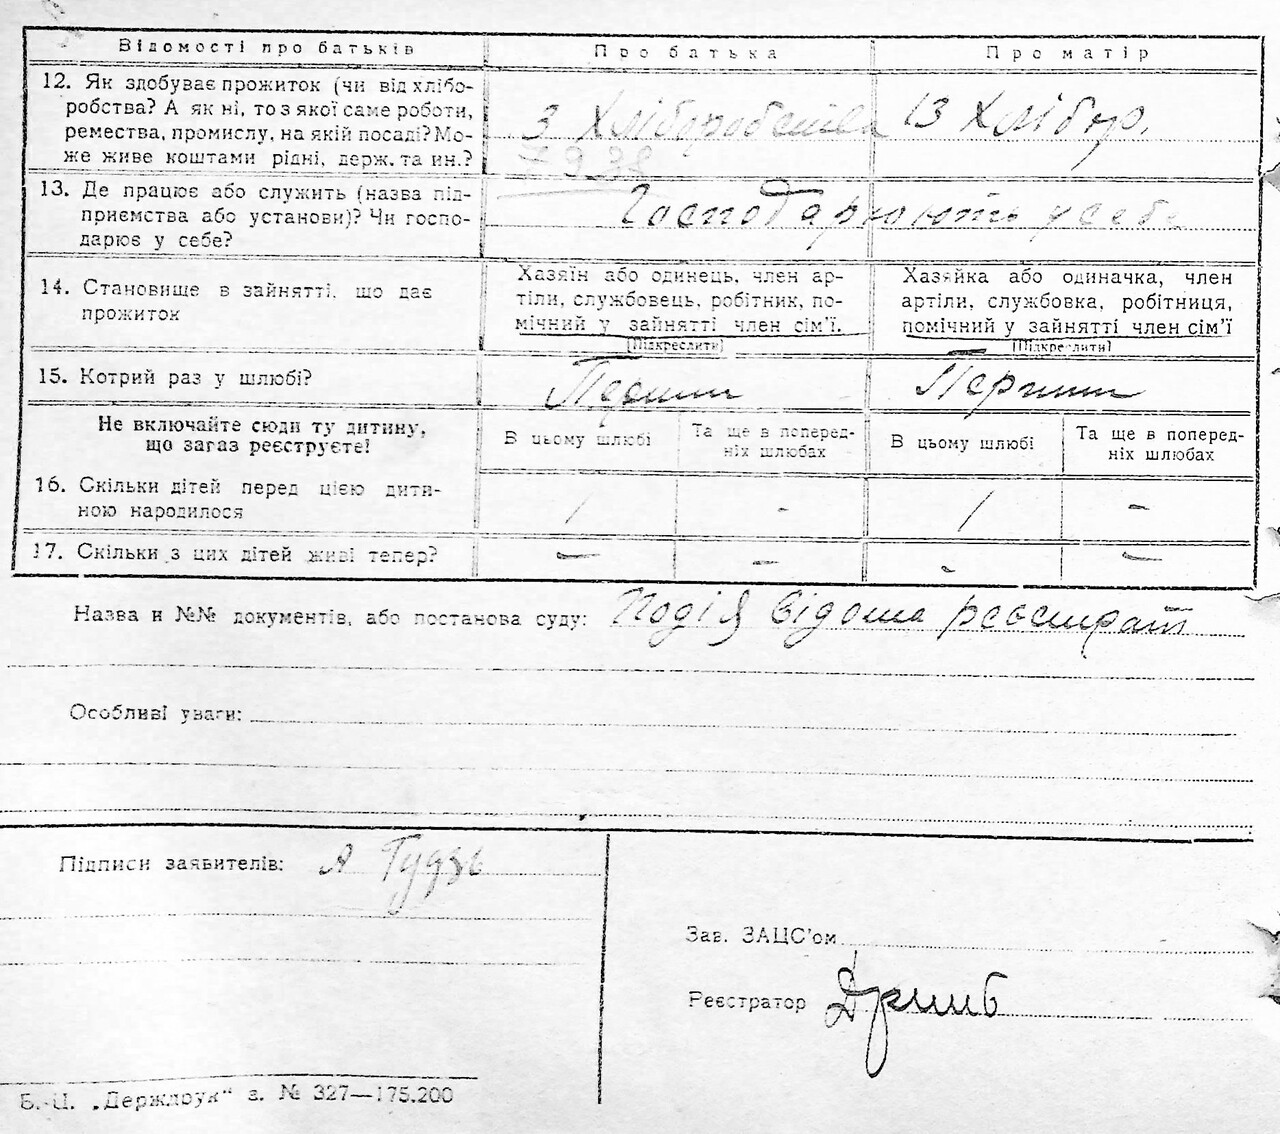 Відомості про батьків Про батька Про матір
12. Як здобуває прожиток (чи від хлібо-
робства? А як ні, то з якої саме роботи,
ремества, промислу, на якій посаді? Мо-
же живе коштами рідні, держ. та ин.?
З Хліборобства
ІЗ Хлібор.
7938
13. Де працює або служить (назва під-
приємства або установи)? Чи госпо-
дарює у себе?
Господарюють у себе
14. Становище в зайнятті, що дає
прожиток
Хазяїн або одинець, член ар-
тіли, службовець, робітник, по-
мічний у зайнятті член сім'ї.
(Підкреслити)
Хазяйка або одиначка, член
артіли, службовка, робітниця,
помічний у зайнятті член сім'ї
(Підкреслити)
15. Котрий раз у шлюбі?
Перший
Перший
Не включайте сюди ту дитину,
що зараз реєструєте!
В цьому шлюбі
Та ще в поперед-
ніх шлюбах
В цьому шлюбі
Та ще в поперед-
ніх шлюбах
16. Скільки дітей перед цією дити-
ною народилося
1 - 1 -
17. Скільки з цих дітей живі тепер?
- - - -
Назва и №№ документів, або постанова суду: Подія відома реєстрат
Особливі уваги:
Підписи заявителів: А Гудзь
Зав. ЗАЦС'ом
Реєстратор
Б.-Ц. „Держдрук" з. № 327—175.200